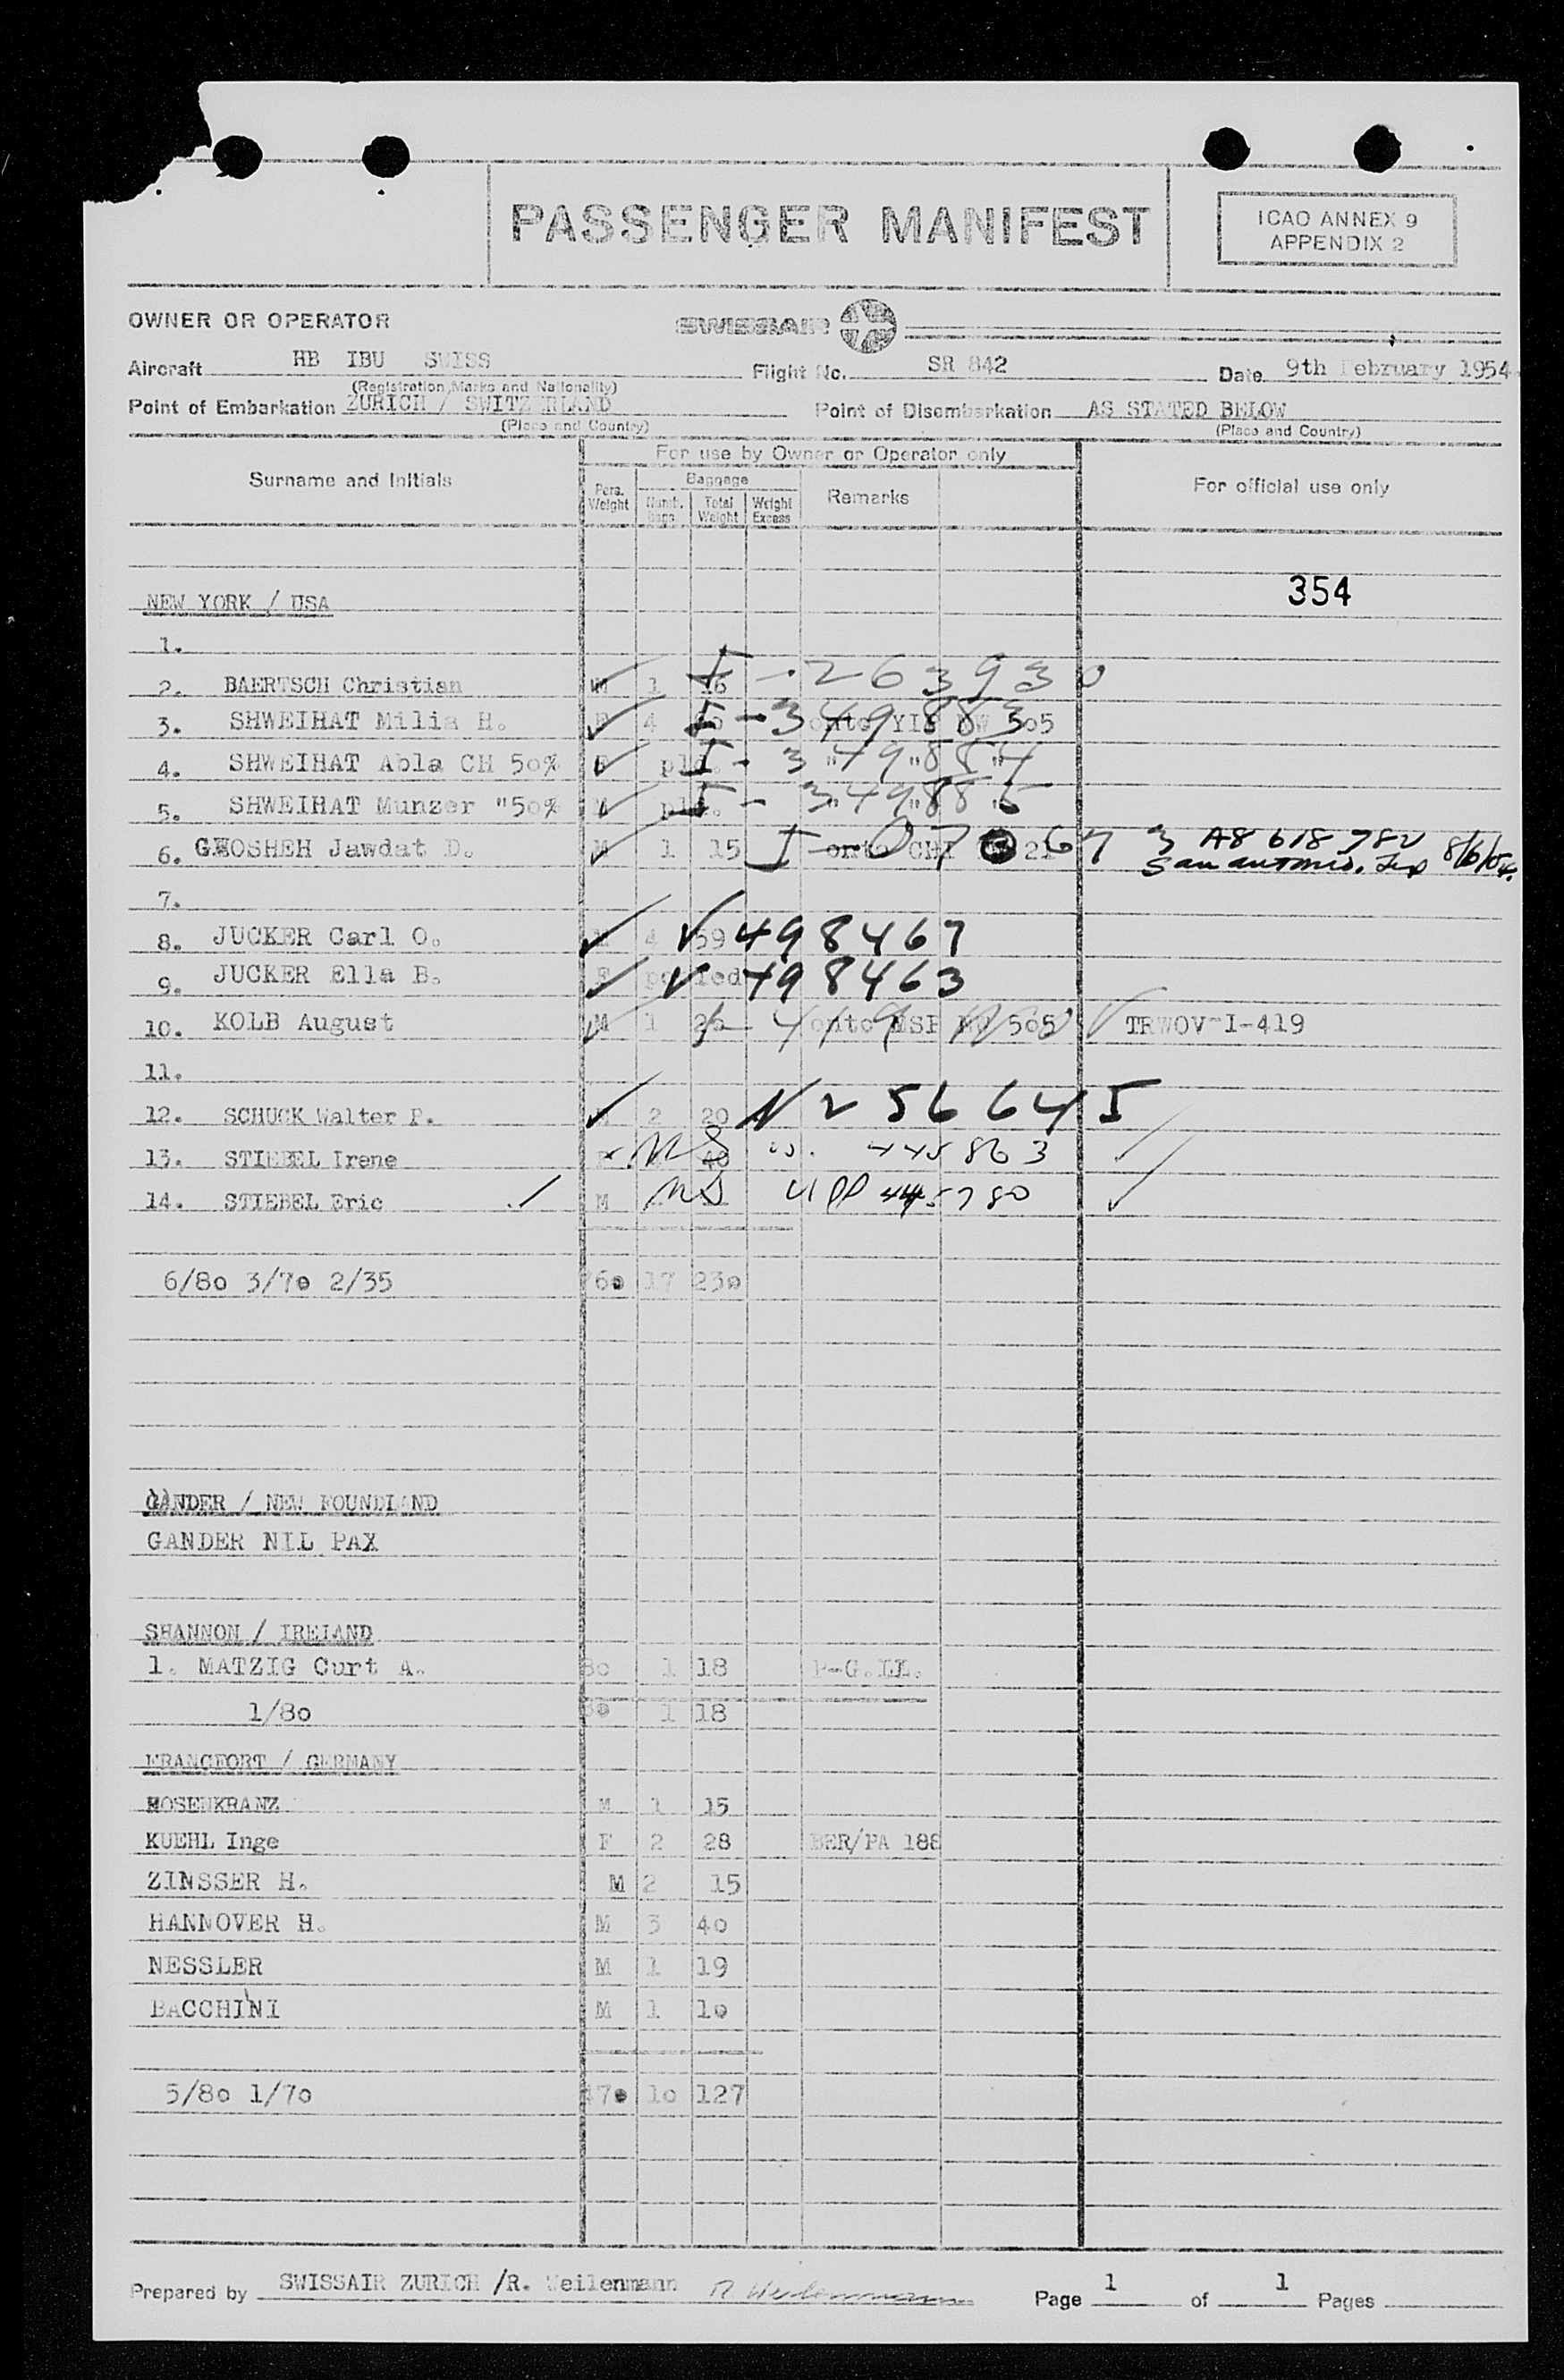 PASSENGER MANIFEST
ICAO ANNEX 9
APPENDIX 2
OWNER OR OPERATOR
SWISSAIR
Aircraft HB IBU SWISS Flight No. SR 842 Date 9th February 1954
(Registration Marks and Nationality)
Point of Embarkation ZURICH / SWITZERLAND Point of Disembarkation AS STATED BELOW
(Place and Country) (Place and Country)
For use by Owner or Operator only
Surname and Initials Pers. Weight Baggage Numb. bags Total Weight Weight Excess Remarks For official use only
354
NEW YORK / USA
1.
2. BAERTSCH Christian M 1 16 I - 263930
3. SHWEIHAT Milia H. F 4 I - 349883 onto YIP NW 505
4. SHWEIHAT Abla CH 50% F pld. I - 349884 " " "
5. SHWEIHAT Munzer "50% M pld. I - 349885 " "
6. GHOSHEH Jawdat D. M 1 15 I - 07 67 3 onto CHI 21 A8 618 782
San Antonio, Tex 8/6/54.
7.
8. JUCKER Carl O. M 4 59 V 498467
9. JUCKER Ella B. F pooled V 498463
10. KOLB August M 1 26 onto MSP NW 505 TRWOV-I-419
11.
12. SCHUCK Walter P. M 2 20 V 256645
13. STIEBEL Irene F 40 NS 445863
14. STIEBEL Eric M NS UPP 445780
6/80 3/70 2/35 760 17 230
GANDER / NEW FOUNDLAND
GANDER NIL PAX
SHANNON / IRELAND
1. MATZIG Curt A. 80 1 18 P-G.LL.
1/80 80 1 18
FRANCFORT / GERMANY
ROSENKRANZ M 1 15
KUEHL Inge F 2 28 BER/PA 188
ZINSSER H. M 2 15
HANNOVER H. M 3 40
NESSLER M 1 19
BACCHINI M 1 10
5/80 1/70 470 10 127
Prepared by SWISSAIR ZURICH /R. Weilenmann R Weilenmann Page 1 of 1 Pages